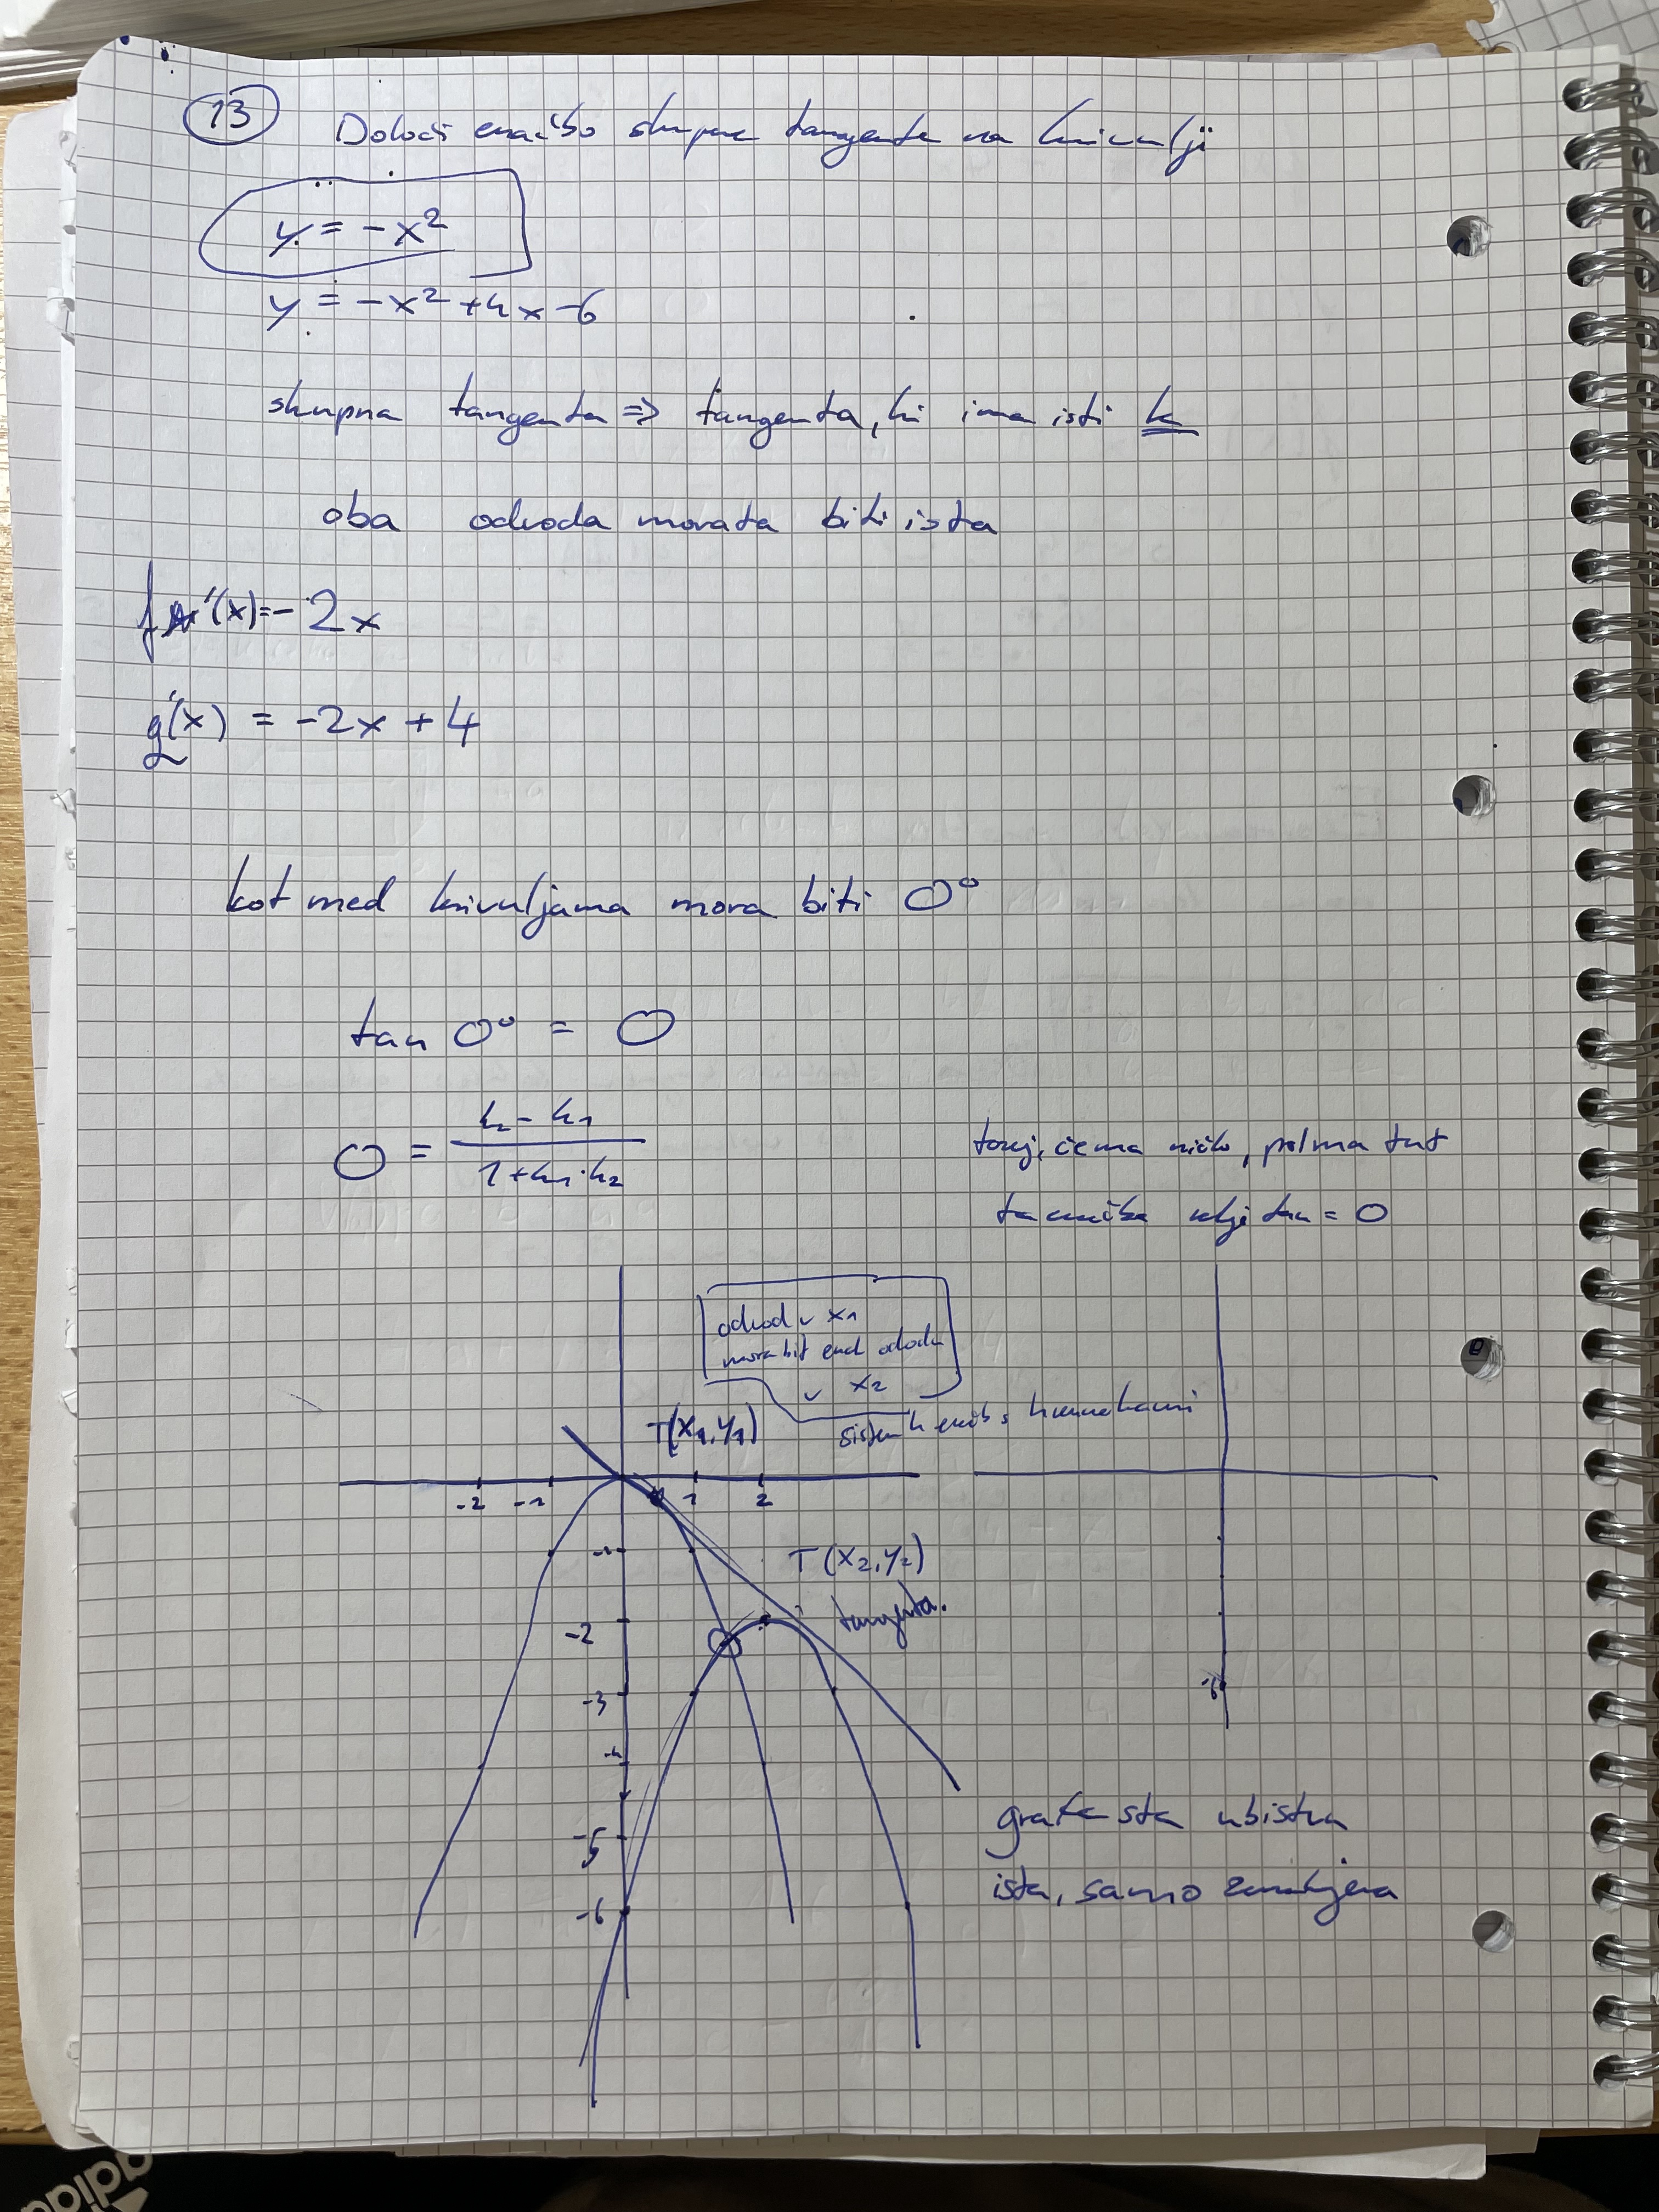 13 Določi enačbo skupne tangente na krivulji
y = -x²
y = -x² + 4x - 6
skupna tangenta ⇒ tangenta, ki ima isti k
oba odvoda morata biti ista
f'(x) = -2x
g'(x) = -2x + 4
kot med krivuljama mora biti 0°
tan 0° = 0
0 = (k₂ - k₁) / (1 + k₁·k₂)
torej, če ma ničlo, pol ma tut
ta enačba tan = 0
odvod v x₁
mora bit enak odvodu
v x₂
T(x₁, y₁)
sistem enačb s
-2 -1 1 2
-1
T(x₂, y₂)
tangenta.
-2
-3
-4
-5
-6
-6
grafa sta ubistvu
ista, samo
adidas